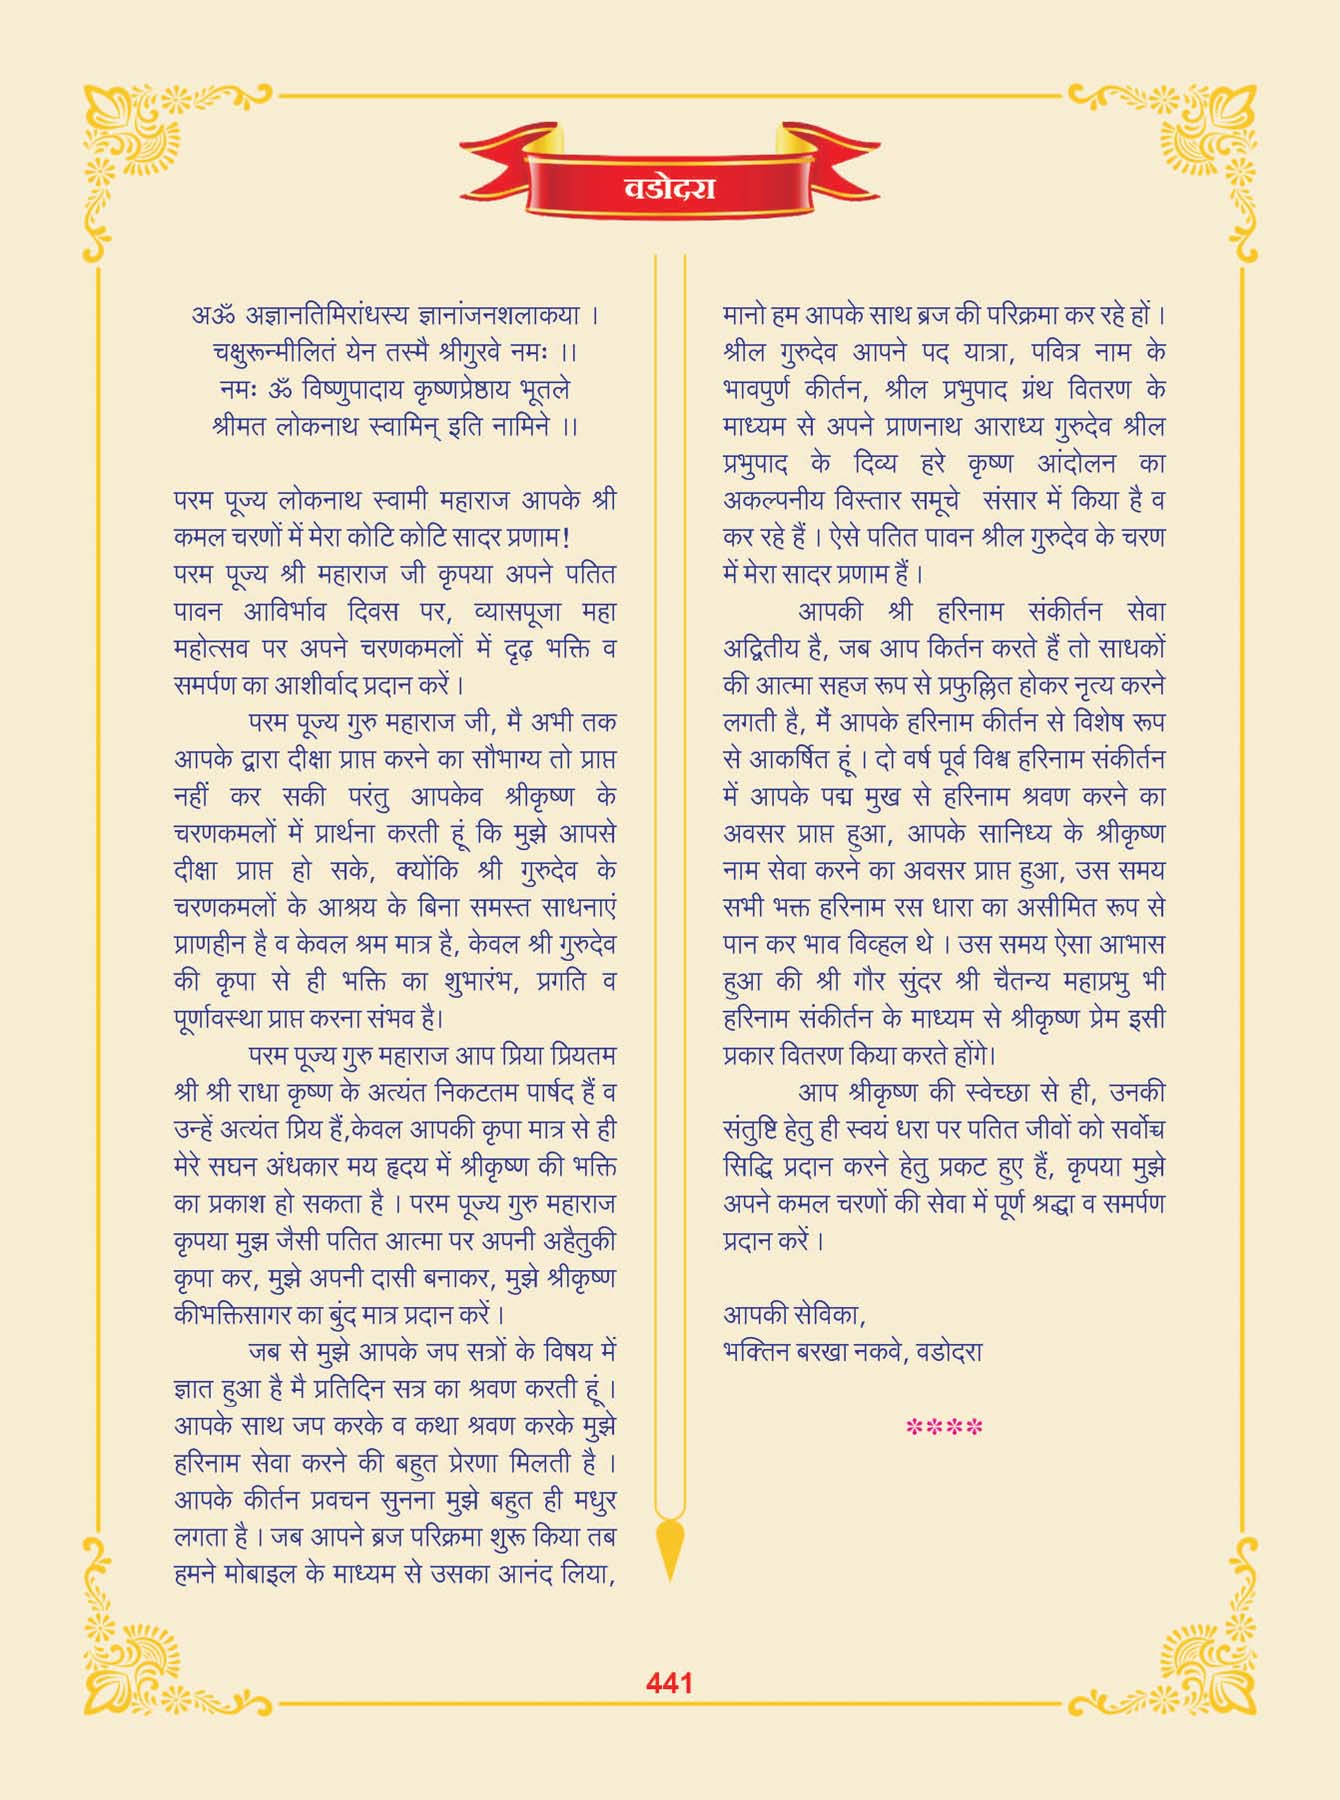 वडोदरा
अॐ अज्ञानतिमिरांधस्य ज्ञानांजनशलाकया ।
चक्षुरून्मीलितं येन तस्मै श्रीगुरवे नमः ।।
नमः ॐ विष्णुपादाय कृष्णप्रेष्ठाय भूतले
श्रीमत लोकनाथ स्वामिन् इति नामिने ।।
परम पूज्य लोकनाथ स्वामी महाराज आपके श्री
कमल चरणों में मेरा कोटि कोटि सादर प्रणाम!
परम पूज्य श्री महाराज जी कृपया अपने पतित
पावन आविर्भाव दिवस पर, व्यासपूजा महा
महोत्सव पर अपने चरणकमलों में दृढ़ भक्ति व
समर्पण का आशीर्वाद प्रदान करें ।
परम पूज्य गुरु महाराज जी, मै अभी तक
आपके द्वारा दीक्षा प्राप्त करने का सौभाग्य तो प्राप्त
नहीं कर सकी परंतु आपकेव श्रीकृष्ण के
चरणकमलों में प्रार्थना करती हूं कि मुझे आपसे
दीक्षा प्राप्त हो सके, क्योंकि श्री गुरुदेव के
चरणकमलों के आश्रय के बिना समस्त साधनाएं
प्राणहीन है व केवल श्रम मात्र है, केवल श्री गुरुदेव
की कृपा से ही भक्ति का शुभारंभ, प्रगति व
पूर्णावस्था प्राप्त करना संभव है।
परम पूज्य गुरु महाराज आप प्रिया प्रियतम
श्री श्री राधा कृष्ण के अत्यंत निकटतम पार्षद हैं व
उन्हें अत्यंत प्रिय हैं,केवल आपकी कृपा मात्र से ही
मेरे सघन अंधकार मय हृदय में श्रीकृष्ण की भक्ति
का प्रकाश हो सकता है । परम पूज्य गुरु महाराज
कृपया मुझ जैसी पतित आत्मा पर अपनी अहैतुकी
कृपा कर, मुझे अपनी दासी बनाकर, मुझे श्रीकृष्ण
कीभक्तिसागर का बुंद मात्र प्रदान करें ।
जब से मुझे आपके जप सत्रों के विषय में
ज्ञात हुआ है मै प्रतिदिन सत्र का श्रवण करती हूं ।
आपके साथ जप करके व कथा श्रवण करके मुझे
हरिनाम सेवा करने की बहुत प्रेरणा मिलती है ।
आपके कीर्तन प्रवचन सुनना मुझे बहुत ही मधुर
लगता है । जब आपने ब्रज परिक्रमा शुरू किया तब
हमने मोबाइल के माध्यम से उसका आनंद लिया,
मानो हम आपके साथ ब्रज की परिक्रमा कर रहे हों ।
श्रील गुरुदेव आपने पद यात्रा, पवित्र नाम के
भावपुर्ण कीर्तन, श्रील प्रभुपाद ग्रंथ वितरण के
माध्यम से अपने प्राणनाथ आराध्य गुरुदेव श्रील
प्रभुपाद के दिव्य हरे कृष्ण आंदोलन का
अकल्पनीय विस्तार समूचे संसार में किया है व
कर रहे हैं । ऐसे पतित पावन श्रील गुरुदेव के चरण
में मेरा सादर प्रणाम हैं ।
आपकी श्री हरिनाम संकीर्तन सेवा
अद्वितीय है, जब आप किर्तन करते हैं तो साधकों
की आत्मा सहज रूप से प्रफुल्लित होकर नृत्य करने
लगती है, मैं आपके हरिनाम कीर्तन से विशेष रूप
से आकर्षित हूं । दो वर्ष पूर्व विश्व हरिनाम संकीर्तन
में आपके पद्म मुख से हरिनाम श्रवण करने का
अवसर प्राप्त हुआ, आपके सानिध्य के श्रीकृष्ण
नाम सेवा करने का अवसर प्राप्त हुआ, उस समय
सभी भक्त हरिनाम रस धारा का असीमित रूप से
पान कर भाव विव्हल थे । उस समय ऐसा आभास
हुआ की श्री गौर सुंदर श्री चैतन्य महाप्रभु भी
हरिनाम संकीर्तन के माध्यम से श्रीकृष्ण प्रेम इसी
प्रकार वितरण किया करते होंगे।
आप श्रीकृष्ण की स्वेच्छा से ही, उनकी
संतुष्टि हेतु ही स्वयं धरा पर पतित जीवों को सर्वोच्च
सिद्धि प्रदान करने हेतु प्रकट हुए हैं, कृपया मुझे
अपने कमल चरणों की सेवा में पूर्ण श्रद्धा व समर्पण
प्रदान करें ।
आपकी सेविका,
भक्तिन बरखा नकवे, वडोदरा
****
441